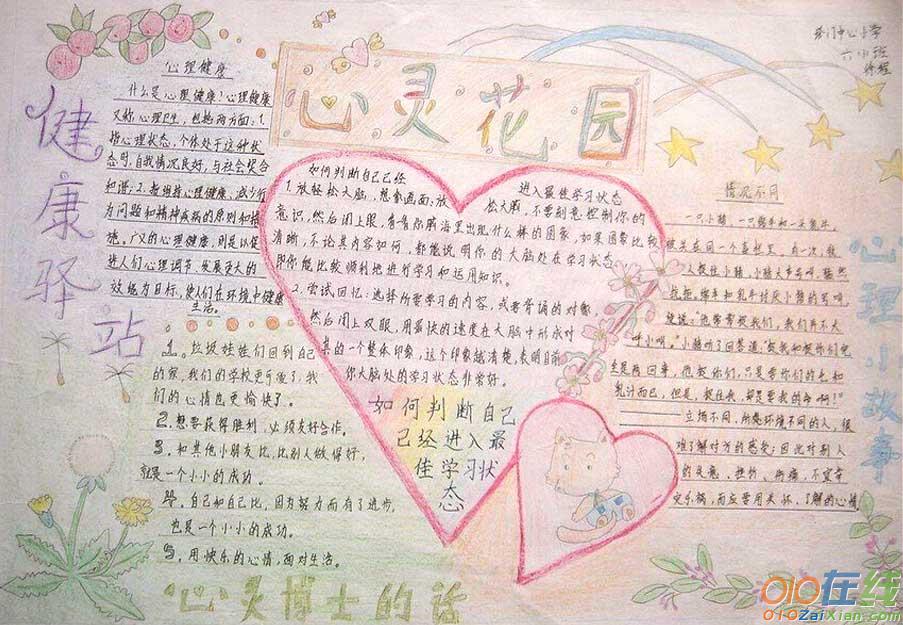 心灵花园
六(4)班
健康驿站
心理健康
什么是心理健康?心理健康
又称心理卫生,包括两方面:1.
指心理状态,个体处于这种状
态时,自我情况良好,与社会契合
和谐;2.指维持心理健康,减少行
为问题和精神疾病的原则和措
施。广义的心理健康,则是以促
进人们心理调节、发展更大的
效能为目标,使人们在环境中健康
生活。
如何判断自己已经
进入最佳学习状态
1.放轻松大脑,想象画面:放
松大脑,不要刻意控制你的
意识,然后闭上眼,看看你脑海里出现什么样的图象,如果图象比较
清晰,不论其内容如何,都能说明你的大脑处在学习状态,
即你能比较顺利地进行学习和运用知识。
2.尝试回忆:选择所要学习的内容,或要背诵的对象,
然后闭上双眼,用最快的速度在大脑中形成对
其的一个整体印象,这个印象越清楚,表明目前
你大脑处的学习状态非常好。
如何判断自己
己经进入最
佳学习状
态
1.垃圾娃娃们回到自己
的家,我们的学校更可爱了,我
们的心情也更愉快了。
2.想要获得胜利,必须友好合作。
3.和其他小朋友比,比别人做得好,
就是一个小小的成功。
4.自己和自己比,因为努力而有了进步,
也是一个小小的成功。
5.用快乐的心情,面对生活。
心灵博士的话
心理小故事
情况不同
一只小猪、一只绵羊和一头乳牛,
被关在同一个畜栏里。有一次,牧
人捉住小猪,小猪大声号叫,猛烈
抗拒。绵羊和乳牛讨厌小猪的号叫,
便说:“他常常捉我们,我们并不大
呼小叫。”小猪听了回答道:“捉我和捉你们完
全是两回事,他捉你们,只是要你们的毛和
乳汁而已,但是,捉住我,却是要我的命啊!”
立场不同,所处环境不同的人,很
难了解对方的感受;因此对别人
的失意、挫折、伤痛,不宜幸
灾乐祸,而应要用关怀、了解的心情
010在线
010ZaiXian.com